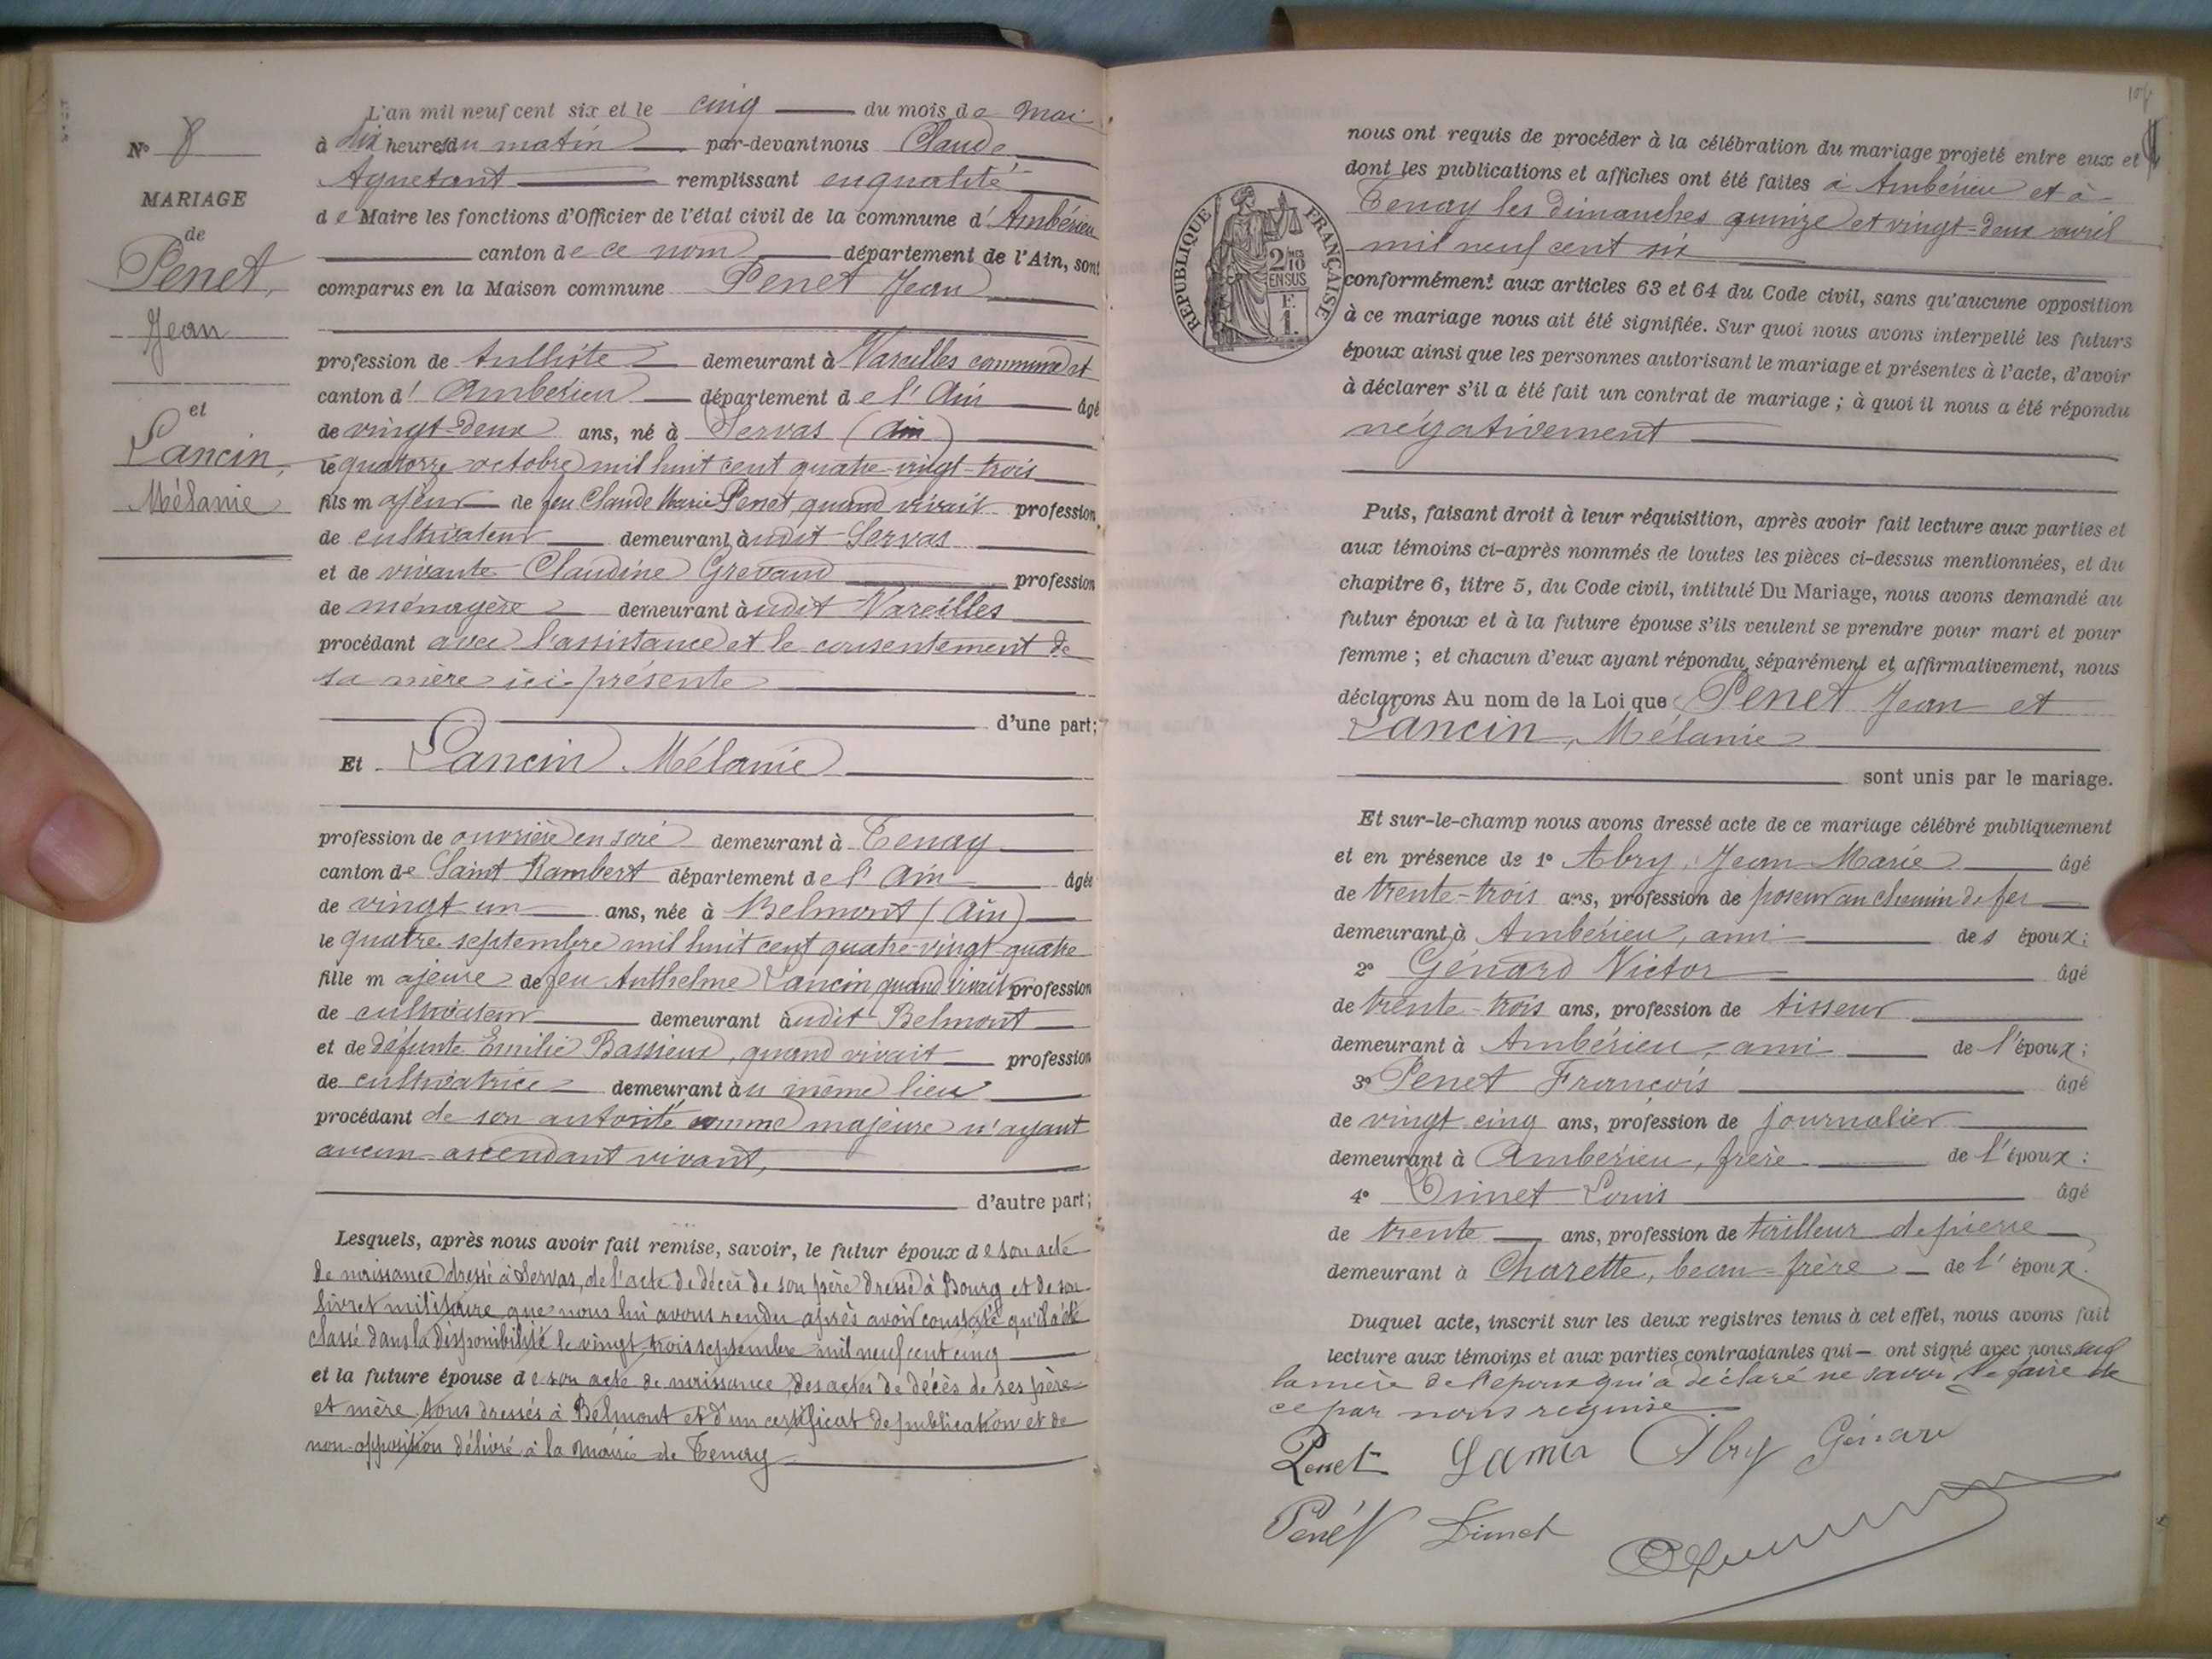 L'an mil neuf cent six et le cinq du mois de mai
N° 8
à dix heures du matin par-devant nous Claude
MARIAGE
Aguetant remplissant en qualité
de Maire les fonctions d'Officier de l'état civil de la commune d'Ambérieu
de
canton de ce nom département de l'Ain, sont
Penet,
comparus en la Maison commune Penet Jean
Jean
profession de tulliste demeurant à Vareilles commune et
canton d'Ambérieu département de l'Ain âgé
et
de vingt-deux ans, né à Servas (Ain)
Lancin,
le quatorze octobre mil huit cent quatre-vingt-trois
Mélanie
fils majeur de feu Claude Marie Penet, quand vivait profession
de cultivateur demeurant audit Servas
et de vivante Claudine Grevaud profession
de ménagère demeurant audit Vareilles
procédant avec l'assistance et le consentement de
sa mère ici présente
d'une part;
Et Lancin Mélanie
profession de ouvrière en soie demeurant à Tenay
canton de Saint Rambert département de l'Ain âgée
de vingt un ans, née à Belmont (Ain)
le quatre septembre mil huit cent quatre-vingt-quatre
fille majeure de feu Anthelme Lancin quand vivait profession
de cultivateur demeurant audit Belmont
et de défunte Emilie Bassieux, quand vivait profession
de cultivatrice demeurant au même lieu
procédant de son autorité comme majeure n'ayant
aucun ascendant vivant,
d'autre part;
Lesquels, après nous avoir fait remise, savoir, le futur époux de son acte
de naissance dressé à Servas, de l'acte de décès de son père dressé à Bourg et de son
livret militaire que nous lui avons rendu après avoir constaté qu'il a été
classé dans la disponibilité le vingt-trois septembre mil neuf cent cinq
et la future épouse de son acte de naissance, des actes de décès de ses père
et mère tous dressés à Belmont et d'un certificat de publication et de
non-opposition délivré à la Mairie de Tenay
nous ont requis de procéder à la célébration du mariage projeté entre eux et
dont les publications et affiches ont été faites à Ambérieu et à
Tenay les dimanches quinze et vingt-deux avril
mil neuf cent six
RÉPUBLIQUE FRANÇAISE
2/10 EN SUS
F. 1.
conformément aux articles 63 et 64 du Code civil, sans qu'aucune opposition
à ce mariage nous ait été signifiée. Sur quoi nous avons interpellé les futurs
époux ainsi que les personnes autorisant le mariage et présentes à l'acte, d'avoir
à déclarer s'il a été fait un contrat de mariage ; à quoi il nous a été répondu
négativement
Puis, faisant droit à leur réquisition, après avoir fait lecture aux parties et
aux témoins ci-après nommés de toutes les pièces ci-dessus mentionnées, et du
chapitre 6, titre 5, du Code civil, intitulé Du Mariage, nous avons demandé au
futur époux et à la future épouse s'ils veulent se prendre pour mari et pour
femme ; et chacun d'eux ayant répondu séparément et affirmativement, nous
déclarons Au nom de la Loi que Penet Jean et
Lancin, Mélanie
sont unis par le mariage.
Et sur-le-champ nous avons dressé acte de ce mariage célébré publiquement
et en présence de 1° Abry, Jean Marie âgé
de trente-trois ans, profession de poseur au chemin de fer
demeurant à Ambérieu, ami des époux;
2° Génard Victor âgé
de trente-trois ans, profession de tisseur
demeurant à Ambérieu, ami de l'époux;
3° Penet François âgé
de vingt cinq ans, profession de journalier
demeurant à Ambérieu, frère de l'époux:
4° Dimet Louis âgé
de trente ans, profession de tailleur de pierre
demeurant à Charette, beau-frère de l'époux.
Duquel acte, inscrit sur les deux registres tenus à cet effet, nous avons fait
lecture aux témoins et aux parties contractantes qui ont signé avec nous sauf
la mère de l'époux qui a déclaré ne savoir le faire de
ce par nous requise.
Penet Abry Génard
Penet Dimet